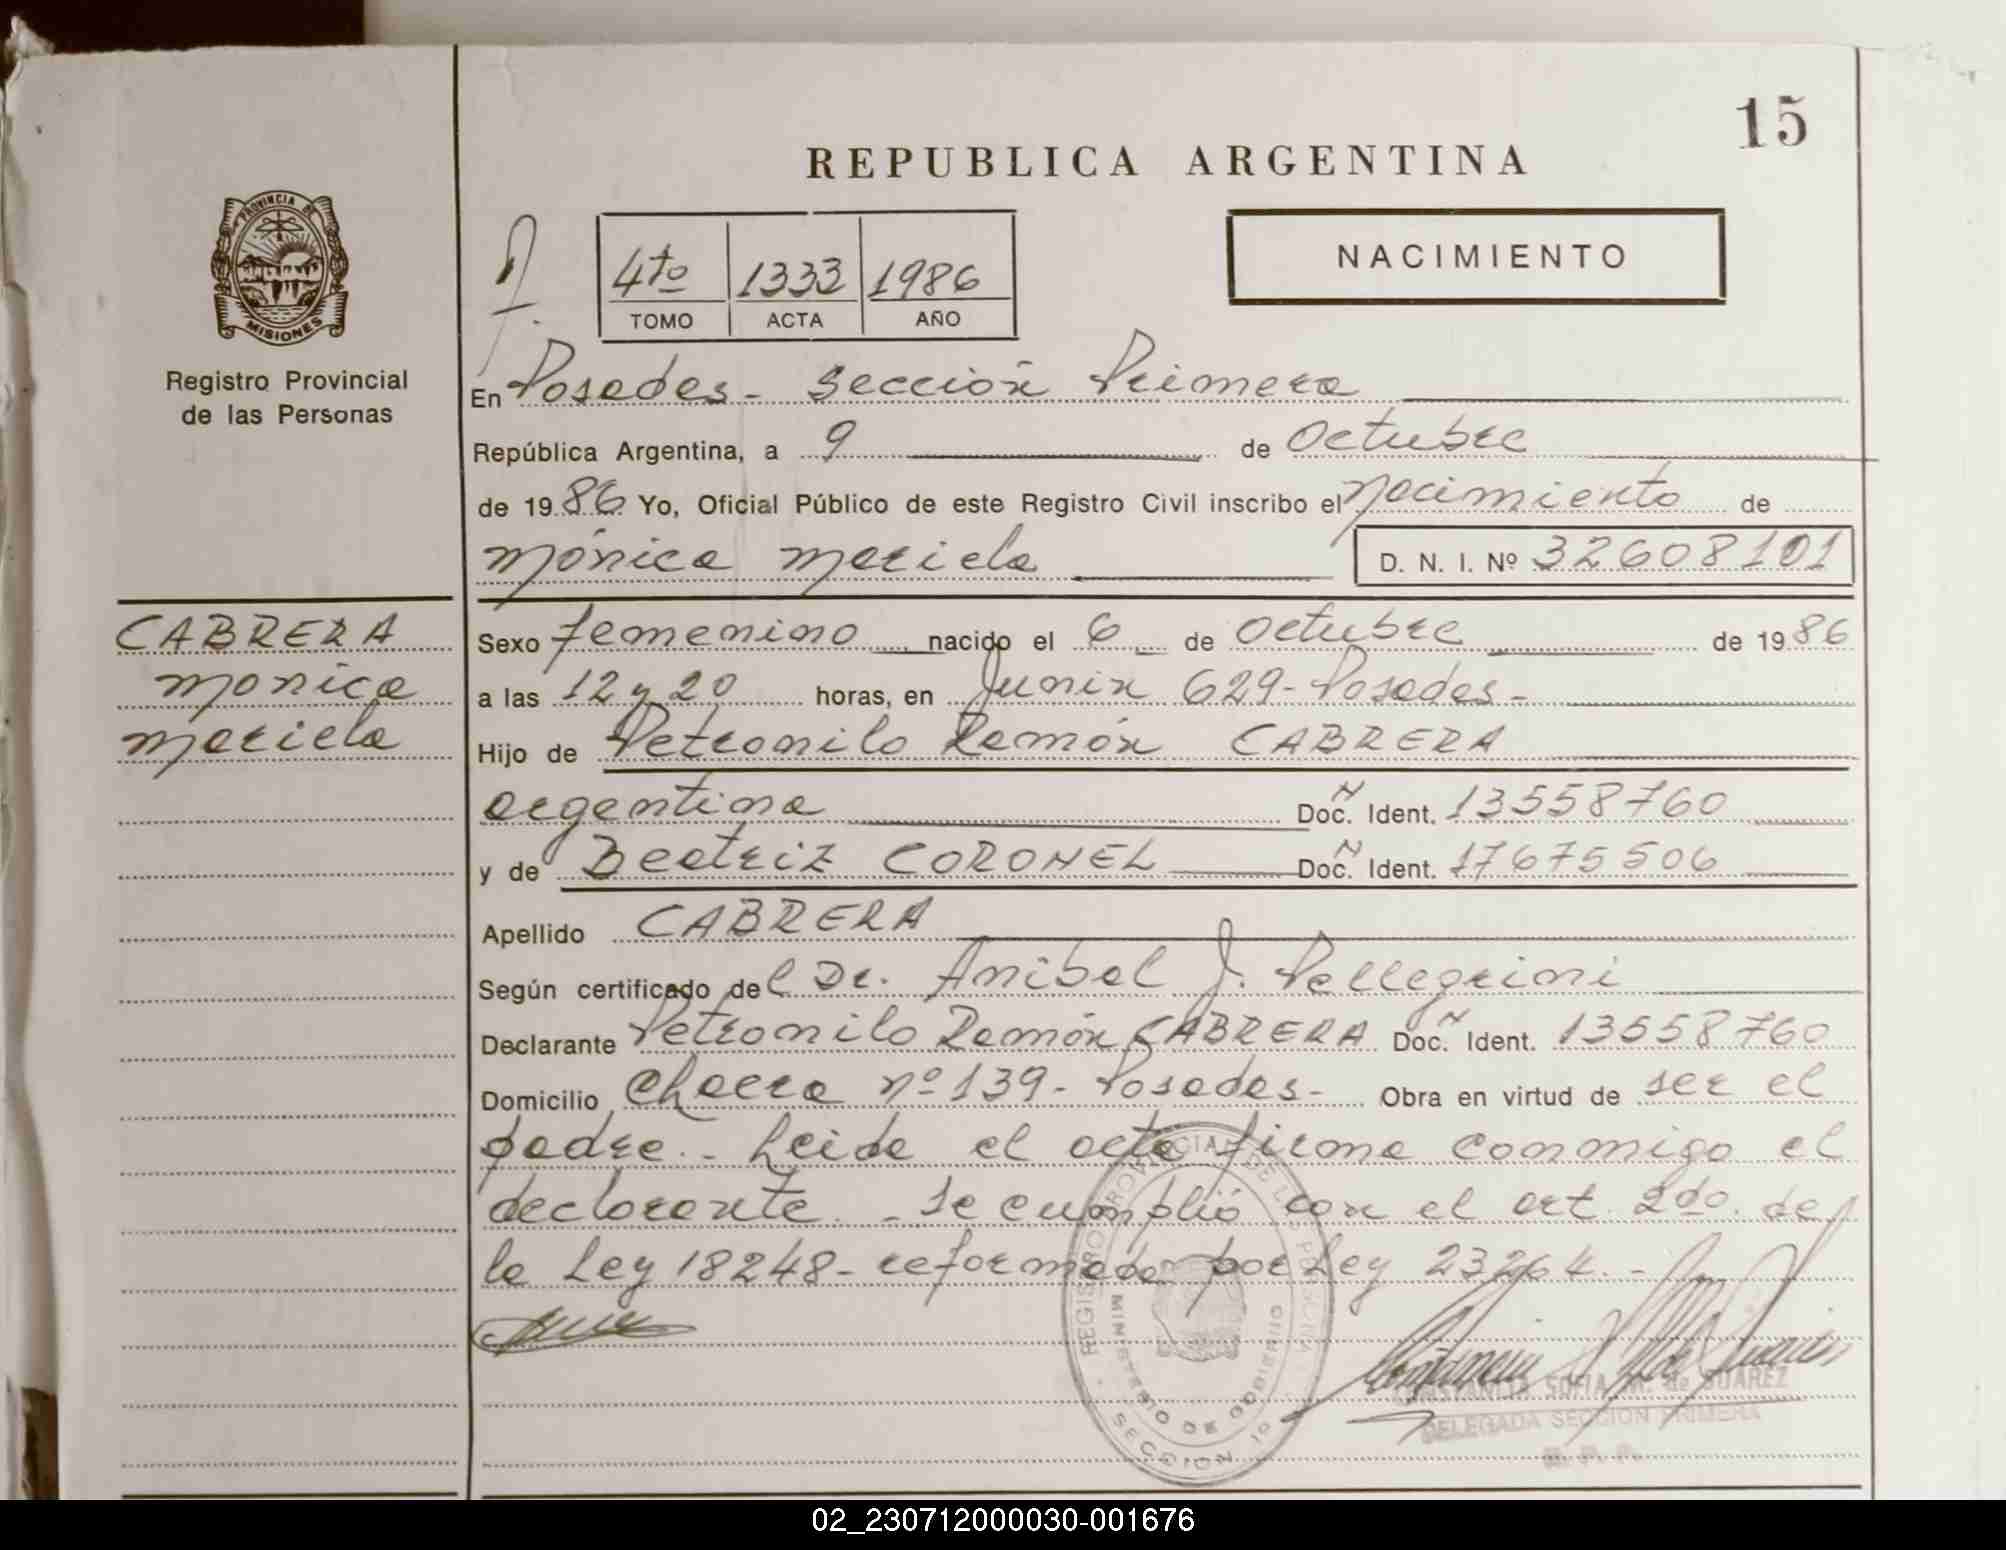 15
REPUBLICA ARGENTINA
PROVINCIA DE
MISIONES
Registro Provincial
de las Personas
4to 1333 1986
TOMO ACTA AÑO
NACIMIENTO
En Posadas - Sección Primera
República Argentina, a 9 de Octubre
de 1986 Yo, Oficial Público de este Registro Civil inscribo el nacimiento de
Mónica Mariela D. N. I. Nº 32608101
CABRERA
Monica
Mariela
Sexo femenino nacido el 6 de Octubre de 1986
a las 12 y 20 horas, en Junin 629 - Posadas -
Hijo de Petronilo Ramón CABRERA
argentina Doc. Ident. 13558760
y de Beatriz CORONEL Doc. Ident. 17675506
Apellido CABRERA
Según certificado del Dr. Anibal J. Pellegrini
Declarante Petronilo Ramón CABRERA Doc. Ident. 13558760
Domicilio Chacra nº 139 - Posadas - Obra en virtud de ser el
padre. - Leida el acta firma conmigo el
declarante. - Se cumplió con el art. 2do. de
la Ley 18248 - reformada por Ley 23264. -
REGISTRO PROVINCIAL DE LAS PERSONAS
MINISTERIO DE GOBIERNO
SECCION 1º
CONSTANCIA SOFIA M. de SUAREZ
DELEGADA SECCION PRIMERA
02_230712000030-001676